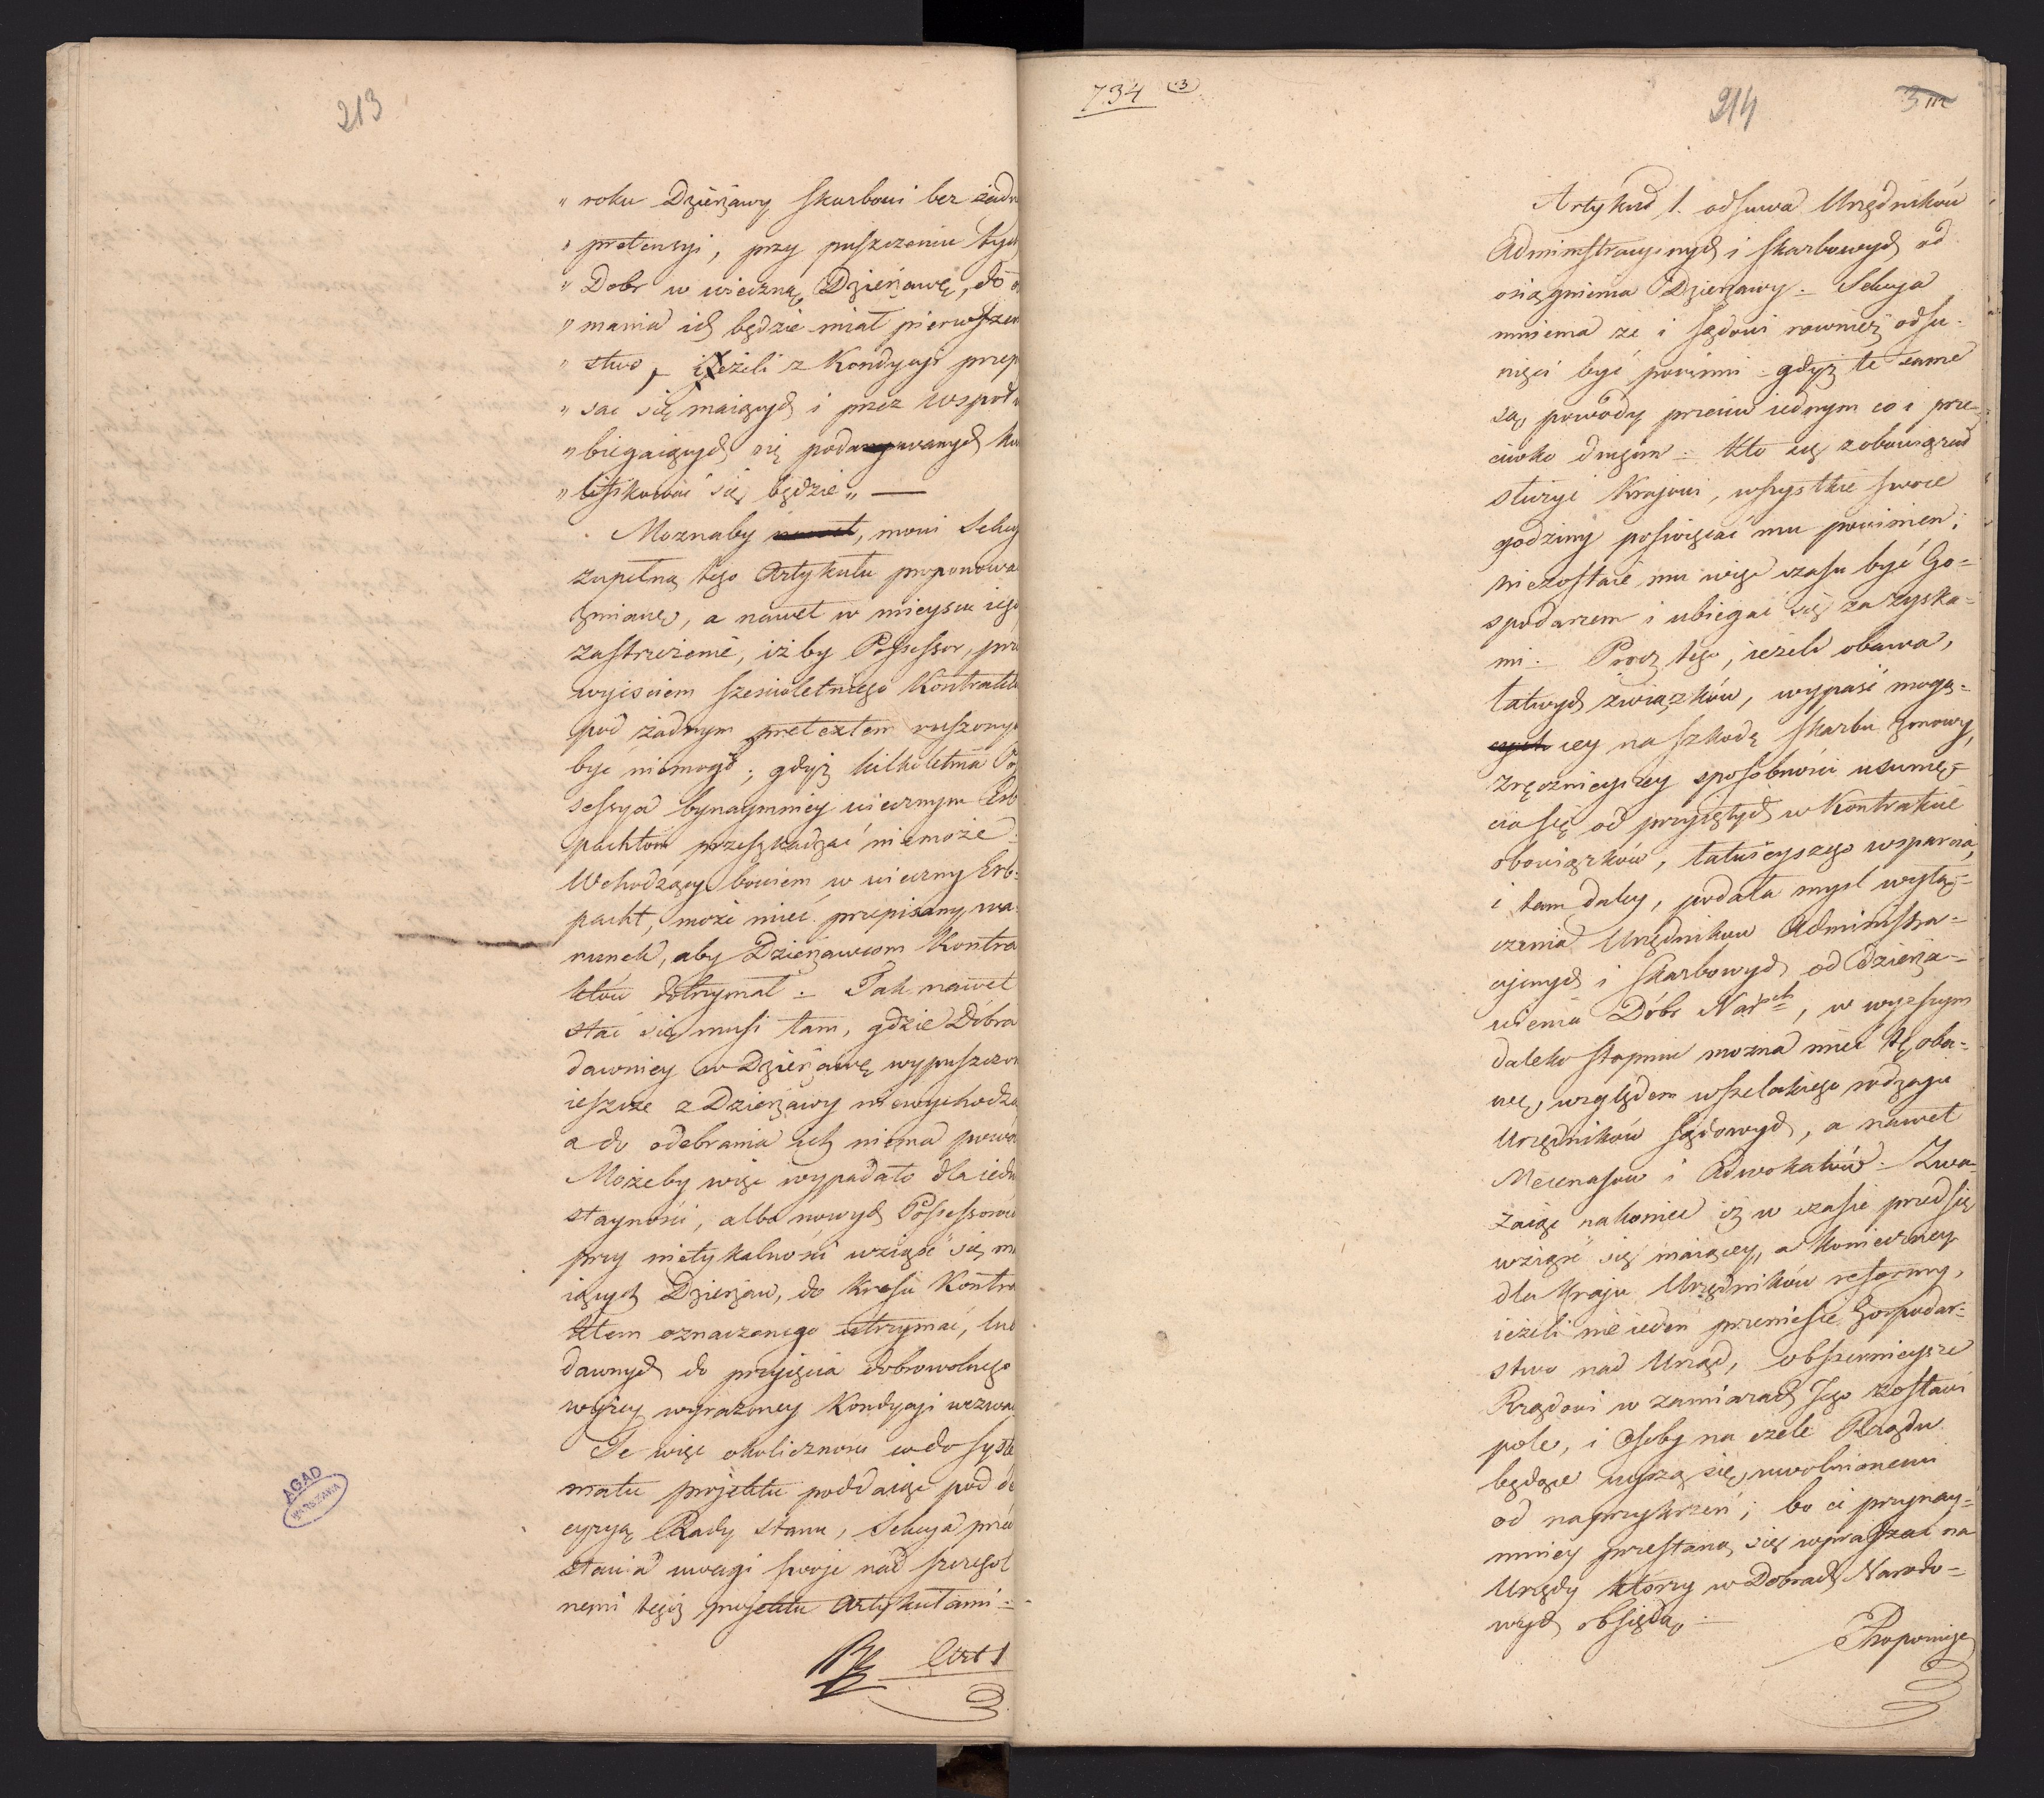 213
„ roku Dzierżawy skarbowi bez żadn
„ pretensyi, przy puszczeniu tych
„ Dobr w wieczną Dzierżawę, do o
„ mania ich będzie miał pierwszeń
„ stwo, jeżeli z Kondycyi przepi
„ sać się maiących i przez wspołu
„ biegaiących się podawanych kwa
„ lifikować się będzie „ —
Moznaby, mowi Sekcy
zupełną tego Artykułu proponowa
zmianę, a nawet w mieyscu iego
zastrzeżenie, iżby Possessor, prze
wyiściem sześcioletniego Kontraktu
pod żadnym pretextem ruszony
być niemogł; gdyż kilkoletnia Pos
sessya bynaymniey wiecznym Erb
pachtom przeszkadzać niemoże -
Wchodzący bowiem w wieczny Erb=
pacht, może mieć przepisany wa
runek, aby Dzierżawcom Kontra
któw dotrzymał - Tak nawet
stać się musi tam, gdzie Dobra
dawniey w Dzierżawę wypuszczon
ieszcze z Dzierżawy niewychodzą
a do odebrania ich niema powo
Możeby więc wypadało dla iedn
stayności, albo nowych Possessorów
przy nietykalności wziąść się ma
iących Dzierżaw, do kresu Kontra
ktem oznaczonego utrzymać, lub
dawnych do przyięcia dobrowolnego
wyżey wyrażoney Kondycyi wezwać
Te więc okoliczności co do syste
matu projektu poddaiąc pod de
cyzyą Rady Stanu, Sekcya przed
stawia uwagi swoje nad szczegol
nemi tegoż projektu Artykułami =
Art 1
AGAD
WARSZAWA
734 (3)
214
3
Artykuł 1. odsuwa Urzędników
Administracyinych i skarbowych od
osiągnienia Dzierżawy - Sekcya
mniema że i sędowi rownież odsu-
nięci być powinni - gdyż te same
są powody przeciw iednym co i prze-
ciwko drugim - Kto się zobowiązał
służyć Krajowi, wszystkie swoie
godziny poświęcać mu powinien;
niezostaie mu więc czasu być Go=
spodarzem i ubiegać się za zyska-
mi - Procz tego, ieżeli obawa,
łatwych związków, wypaść mogą=
cey na szkodę skarbu zmowy,
zręcznieyszey sposobności usunię=
cia się od przyiętych w Kontrakcie
obowiązków, łatwieyszego wsparcia,
i tam daley, podała mysl wyłą=
czenia Urzędnikow Administra=
cyinych i skarbowych od dzierża=
wienia Dóbr Narych, w wyzszym
daleko stopniu można mieć tę oba=
wę, względem wszelakiego rodzaju
Urzędników sądowych, a nawet
Mecenasow i Adwokatów - Zwa-
żaiąc nakoniec iż w czasie przedsię
wziąść się maiącey, a konieczney
dla kraju Urzędników reformy,
ieżeli nie ieden przeniesie Gospodar=
stwo nad Urząd, obszernieysze
Rządowi w zamiarach Jego zostawi
pole, i Osoby na czele Rządu
będące uyrzą się, uwolnionemi
od naprzykrzeń; bo ci przynay=
mniey przestaną się wpraszać na
Urzędy którzy w Dobrach Narodo=
wych obsiędą -
Proponuiąc